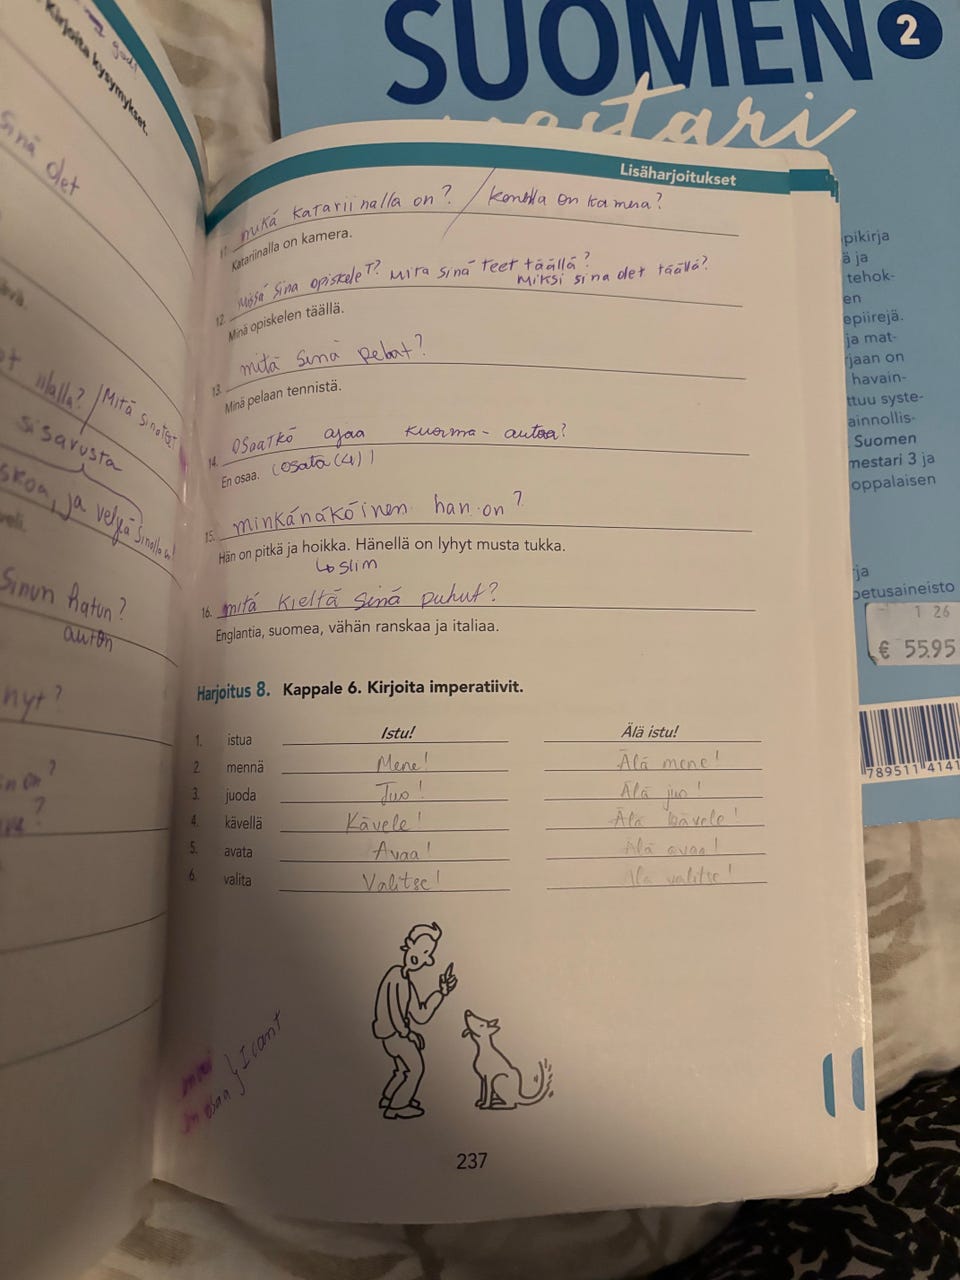 Kirjoita kysymykset.
sinä olet
illalla? / Mitä sinä teet
sisarusta
ja veljeä sinulla on?
veli.
Sinun
auton
nyt?
on?
SUOMEN 2
mestari
Lisäharjoitukset
mikä katariinalla on? / kenellä on kamera?
11.
Katariinalla on kamera.
missä sina opiskelet? Mita sinä teet täällä?
miksi sina olet täällä?
12.
Minä opiskelen täällä.
mitä sinä pelaat?
13.
Minä pelaan tennistä.
osaatkö ajaa kuorma-autoa?
14.
En osaa. (osata (4))
minkänäköinen han on?
15.
Hän on pitkä ja hoikka. Hänellä on lyhyt musta tukka.
↳ slim
16. mitä kieltä sinä puhut?
Englantia, suomea, vähän ranskaa ja italiaa.
Harjoitus 8. Kappale 6. Kirjoita imperatiivit.
1. istua Istu! Älä istu!
2. mennä Mene! Älä mene!
3. juoda Juo! Älä juo!
4. kävellä Kävele! Älä kävele!
5. avata Avaa! Älä avaa!
6. valita Valitse! Älä valitse!
en osaa } I cant
237
pikirja
ä ja
tehok-
en
epiirejä.
ja mat-
rjaan on
havain-
ttuu syste-
ainnollis-
Suomen
mestari 3 ja
oppalaisen
rja
petusaineisto
1 26
€ 55.95
789511 4141